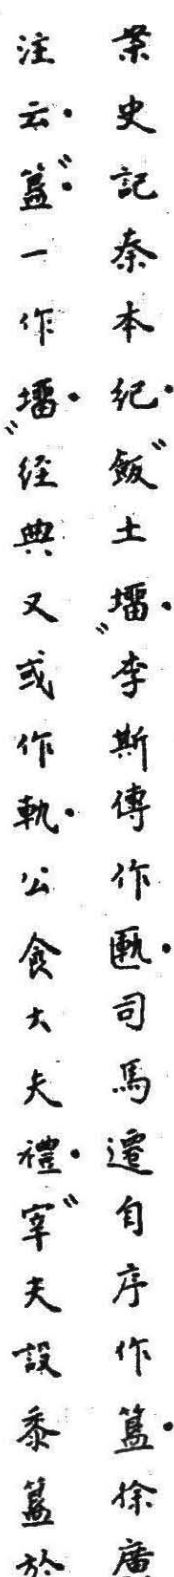 案史記秦本紀飯土塯李斯傳作匭司馬遷自序作簋徐廣
注云簋一作塯經典又或作軌公食大夫禮宰夫設黍簋於